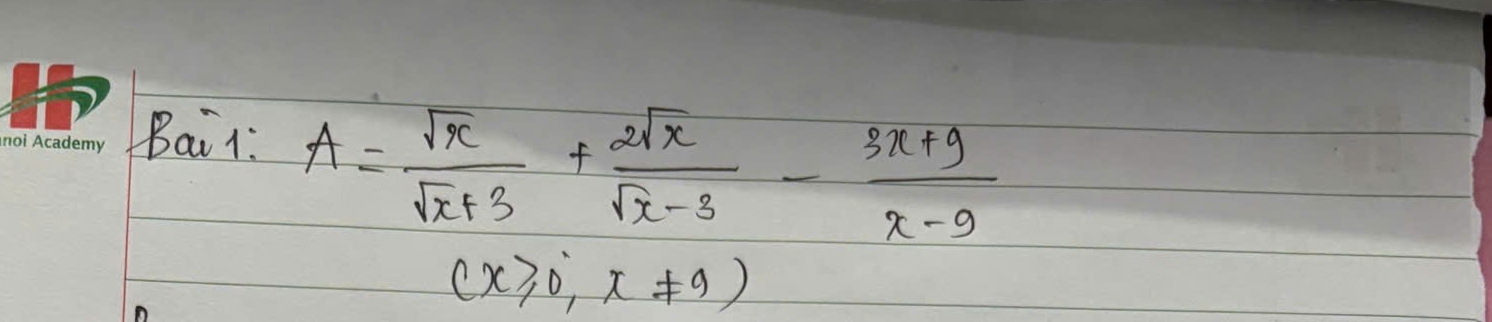 noi Academy
Bài 1: A = \frac{\sqrt{x}}{\sqrt{x}+3} + \frac{2\sqrt{x}}{\sqrt{x}-3} - \frac{3x+9}{x-9}
(x ⩾ 0, x ≠ 9)